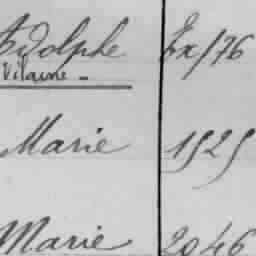 Adolphe Ex/76
Vilaine.
Marie 1525
Marie 2046